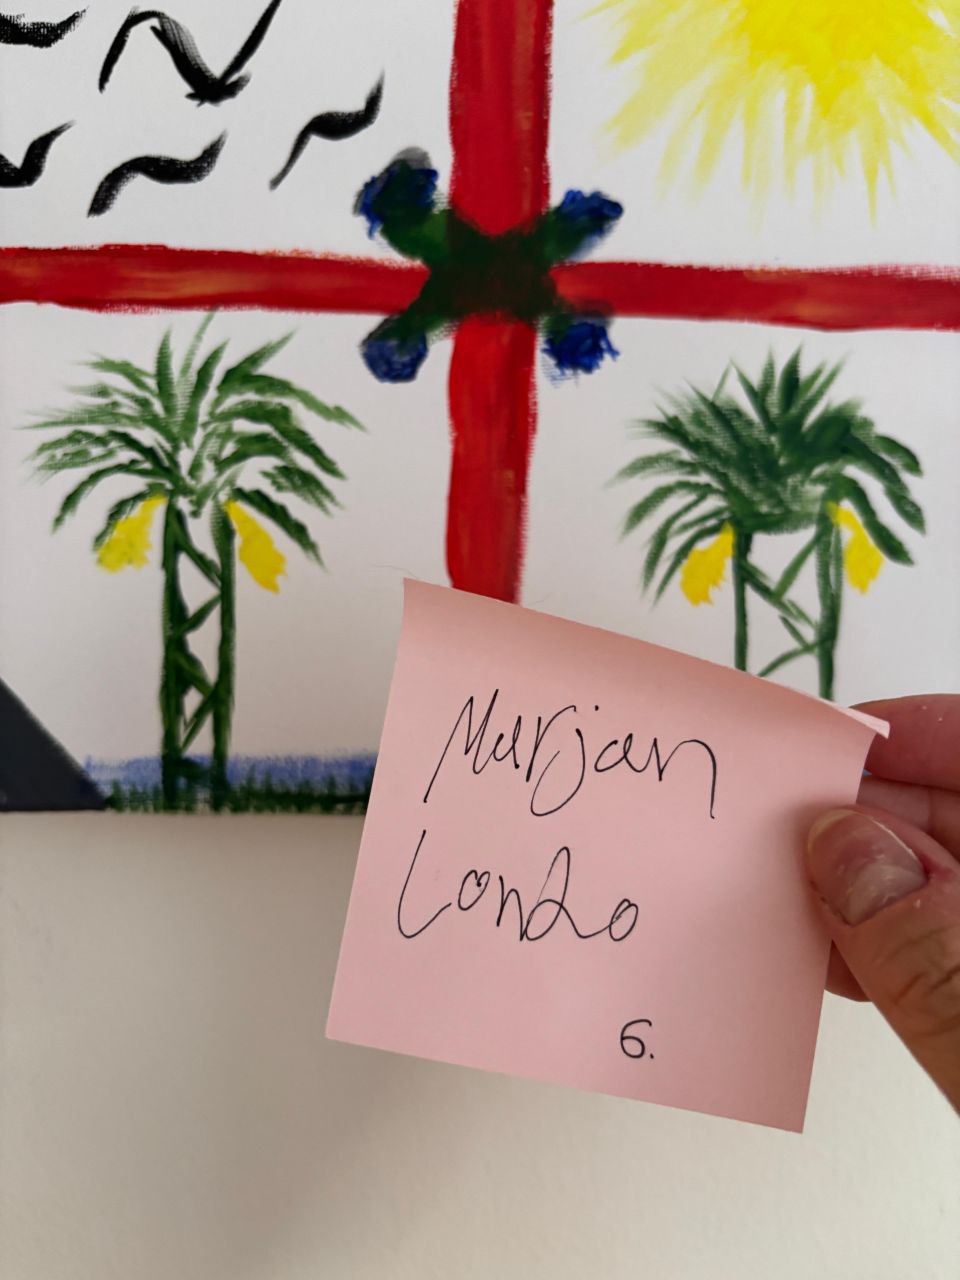 Marjan
Londo
6.